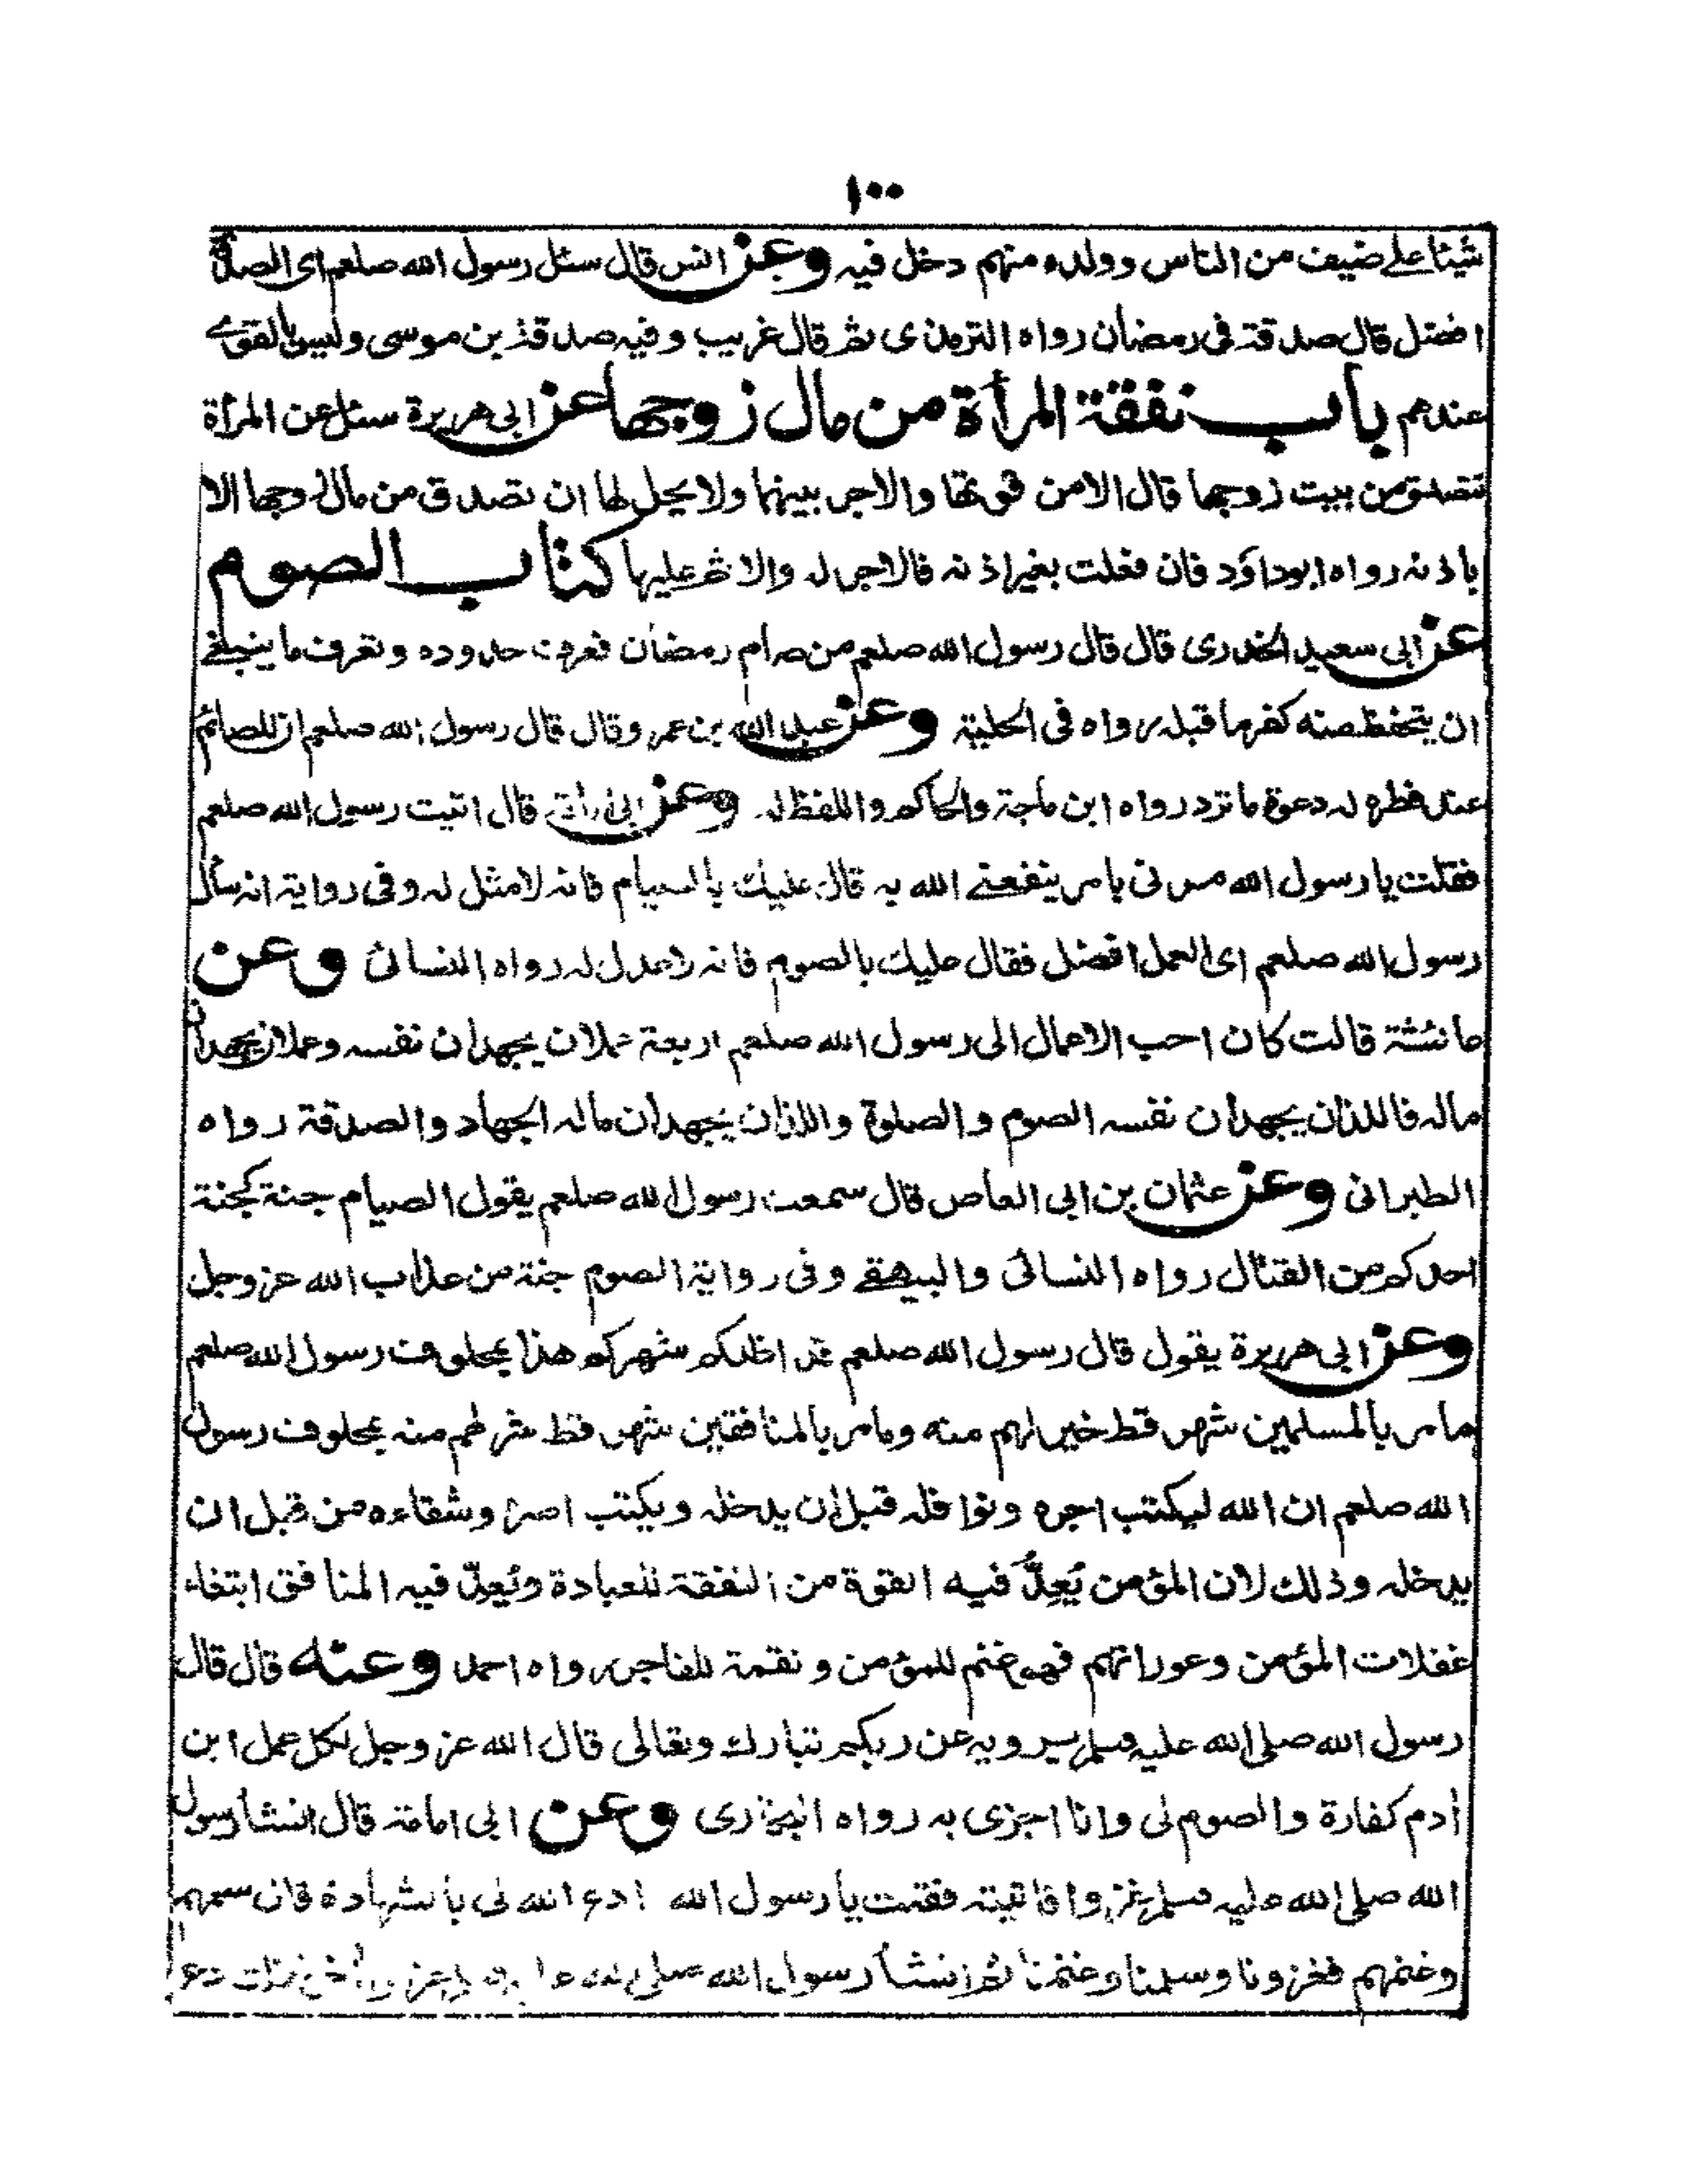 ١٠٠
شيئا على ضيف من الناس وولده منهم دخل فيه وعن انس قال سئل رسول الله صلعم اى الصدقة
افضل قال صدقة فى رمضان رواه الترمذى ثم قال غريب وفيه صدقة بن موسى وليس بالقوے
عندهم باب نفقة المرأة من مال زوجها عن ابى هريرة سئل عن المرأة
تتصدق من بيت زوجها قال الا من قوتها والاجر بينهما ولا يحل لها ان تصدق من مال زوجها الا
باذنه رواه ابوداؤد فان فعلت بغير اذنه فالاجر له والاثم عليها كتاب الصوم
عن ابى سعيد الخدرى قال قال رسول الله صلعم من صام رمضان فعرف حدوده وتعرف ما ينبغے
ان يتحفظ منه كفر ما قبله رواه فى الحلية وعن عبد الله بن عمر وقال قال رسول الله صلعم ان للصائم
عند فطره له دعوة ما ترد رواه ابن ماجة والحاكم واللفظ له وعن ابى قال اتيت رسول الله صلعم
فقلت يا رسول الله مرنى بامر ينفعنے الله به قال عليك بالصيام فانه لا مثل له وفى رواية انه سأل
رسول الله صلعم اى العمل افضل فقال عليك بالصوم فانه لاعدل له رواه النسائى وعن
عائشة قالت كان احب الاعمال الى رسول الله صلعم اربعة عملان يجهدان نفسه وعملان يجهدان
ماله فاللذان يجهدان نفسه الصوم والصلوة واللذان يجهدان ماله الجهاد والصدقة رواه
الطبرانى وعن عثمان بن ابى العاص قال سمعت رسول الله صلعم يقول الصيام جنة كجنة
احدكم من القتال رواه النسائى والبيهقے وفى رواية الصوم جنة من عذاب الله عز وجل
وعن ابى هريرة يقول قال رسول الله صلعم قد اظلكم شهركم هذا بمحلوف رسول الله صلعم
ما مر بالمسلمين شهر قط خير لهم منه وما مر بالمنافقين شهر قط شر لهم منه بمحلوف رسول
الله صلعم ان الله ليكتب اجره ونوافله قبل ان يدخله ويكتب اصره وشقاءه من قبل ان
يدخله وذلك لان المؤمن يُعِدُّ فيه القوة من النفقة للعبادة ويُعِدّ فيه المنافق ابتغاء
غفلات المؤمن وعوراتهم فهو غنم للمؤمن ونقمة للفاجر رواه احمد وعنه قال قال
رسول الله صلى الله عليه وسلم يرويه عن ربكم تبارك وتعالى قال الله عز وجل لكل عمل ابن
أدم كفارة والصوم لى وانا اجزى به رواه البخارى وعن ابى امامة قال انشأ رسول
الله صلى الله عليه وسلم غزوا فاتيته فقلت يا رسول الله ادع الله لى بالشهادة قال سلمهم
وغنمهم فغزونا وسلمنا وغنمنا ثم انشأ رسول الله صلى الله